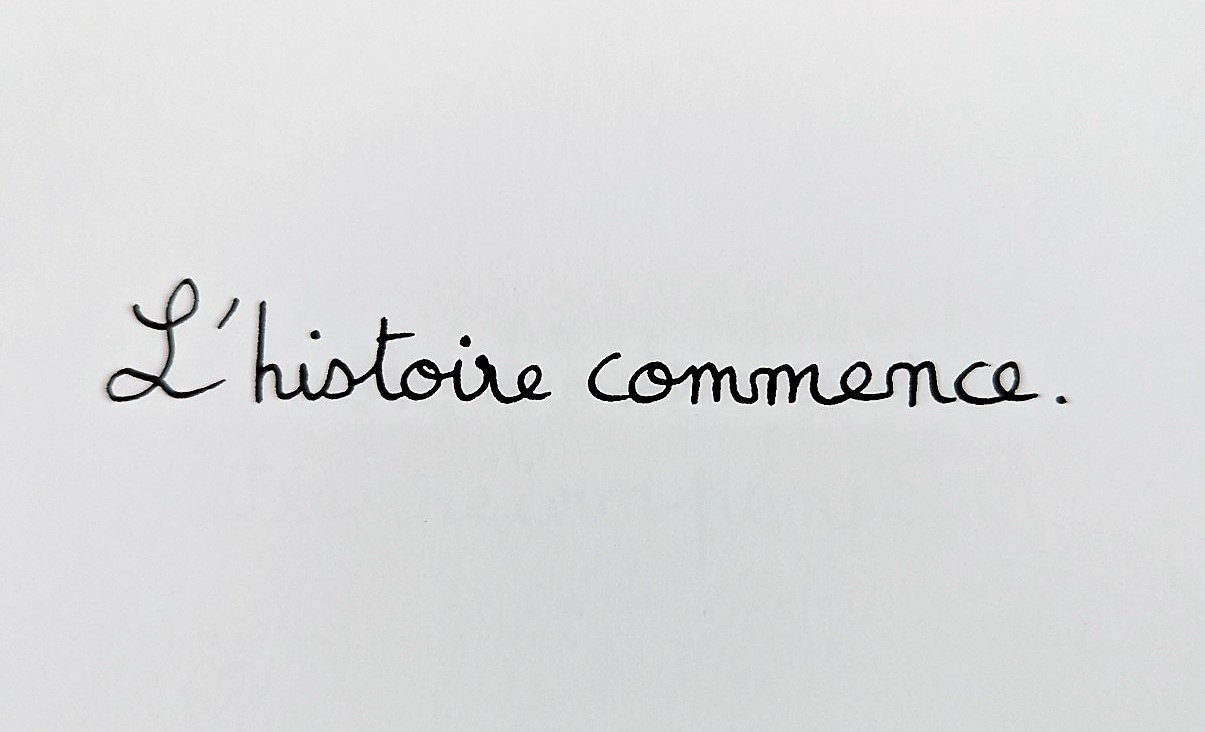 L'histoire commence.